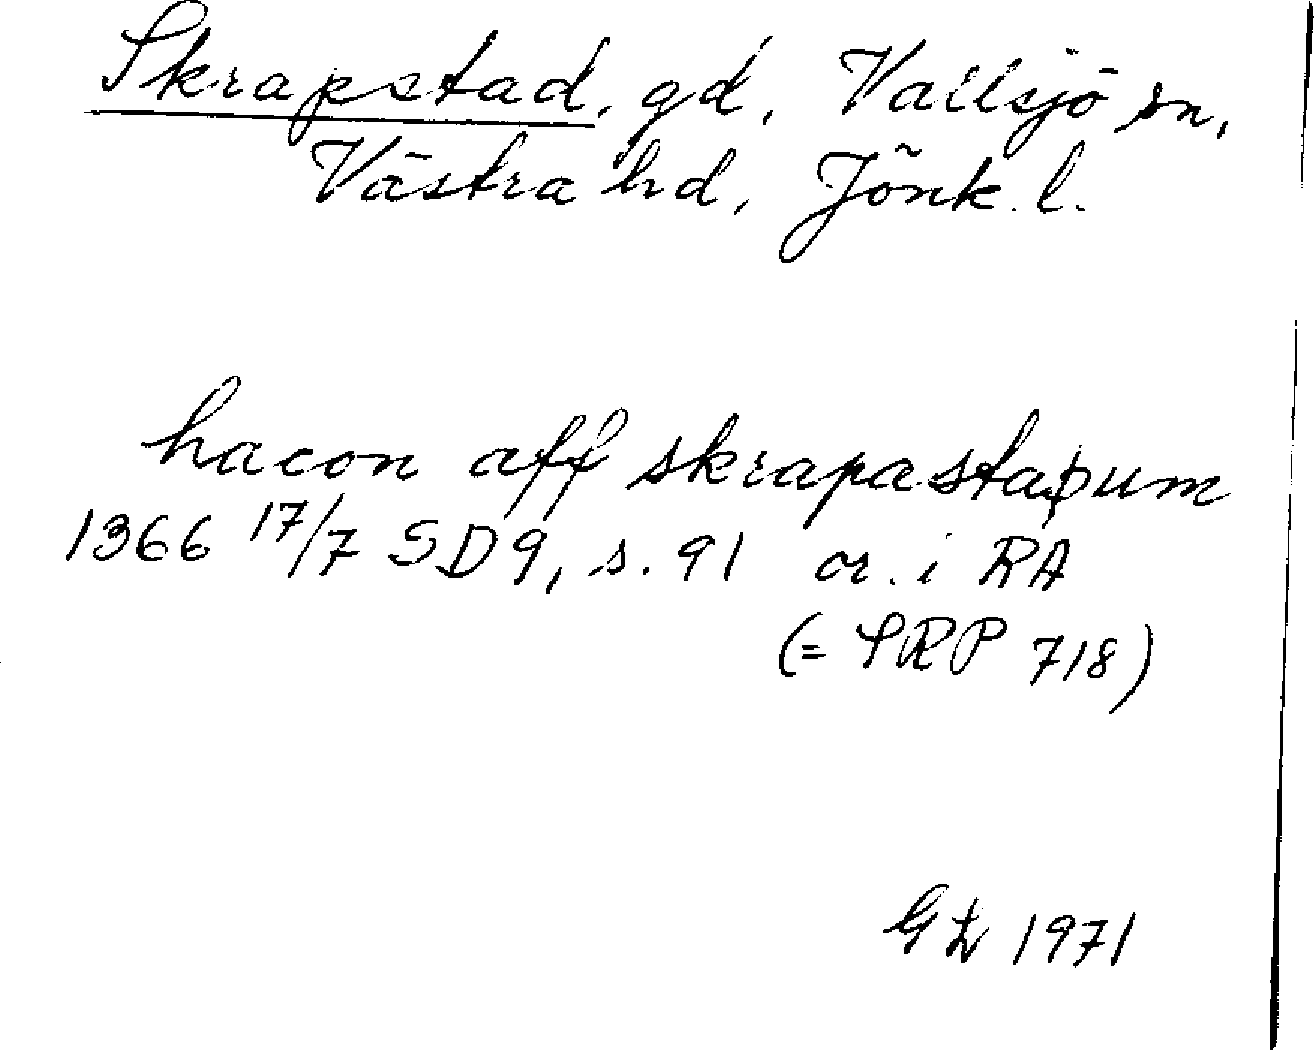 Skrapstad, gd, Vallsjö sn,
Västra hd, Jönk. l.
hacon aff skrapastaþum
1366 17/7 SD 9, s. 91 or. i RA
(= SRP 718)
1971